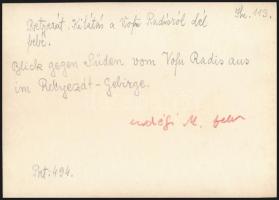 Retyezát. Kilátás a Vofu Radisról dél
felé.
Blick gegen Süden vom Vofu Radis aus
im Retyezát-Gebirge.
M. felv
Pozt: 494.
113.